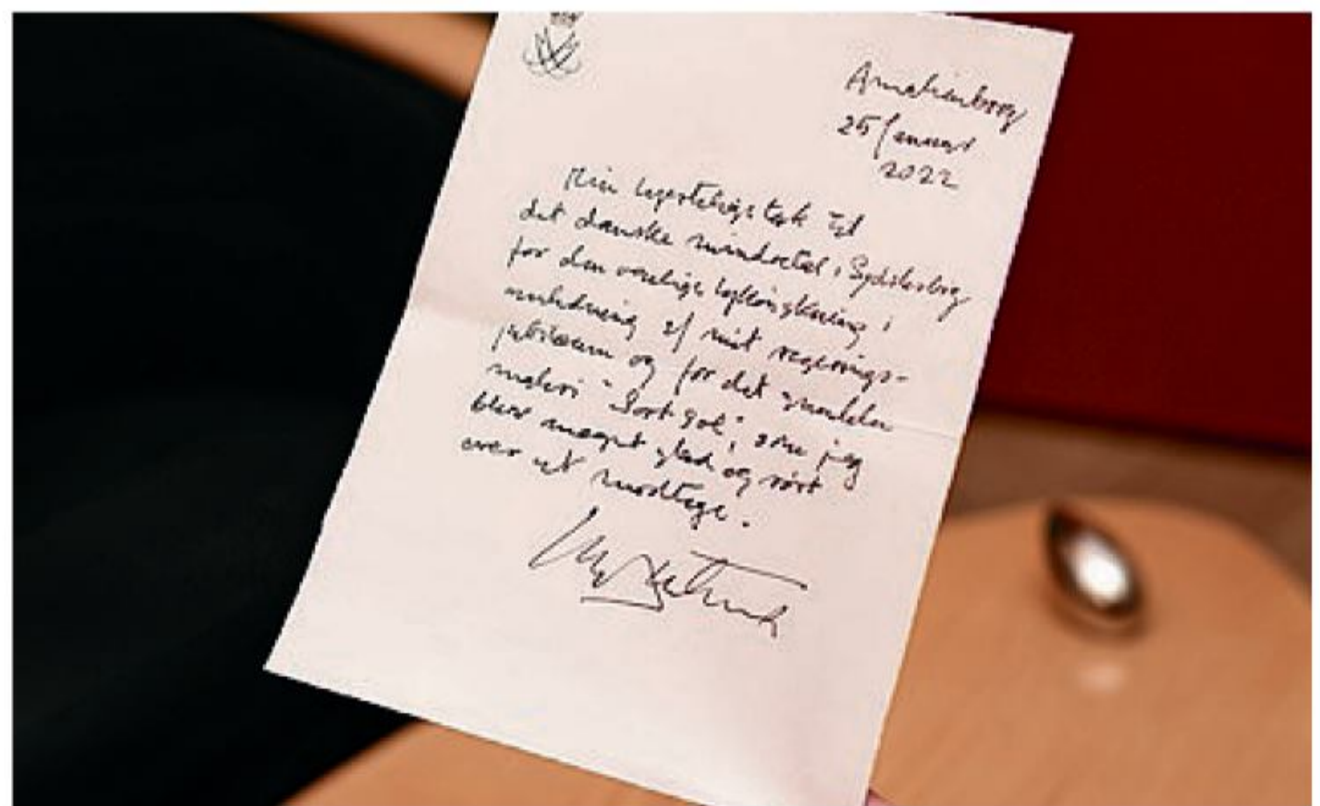 Amalienborg
25 januar
2022
Min hjerteligste tak til
det danske mindretal i Sydslesvig
for den venlige lykønskning i
anledning af mit regerings-
jubilæum og for det smukke
maleri "Sort sol", som jeg
blev meget glad og rørt
over at modtage.
Margrethe R